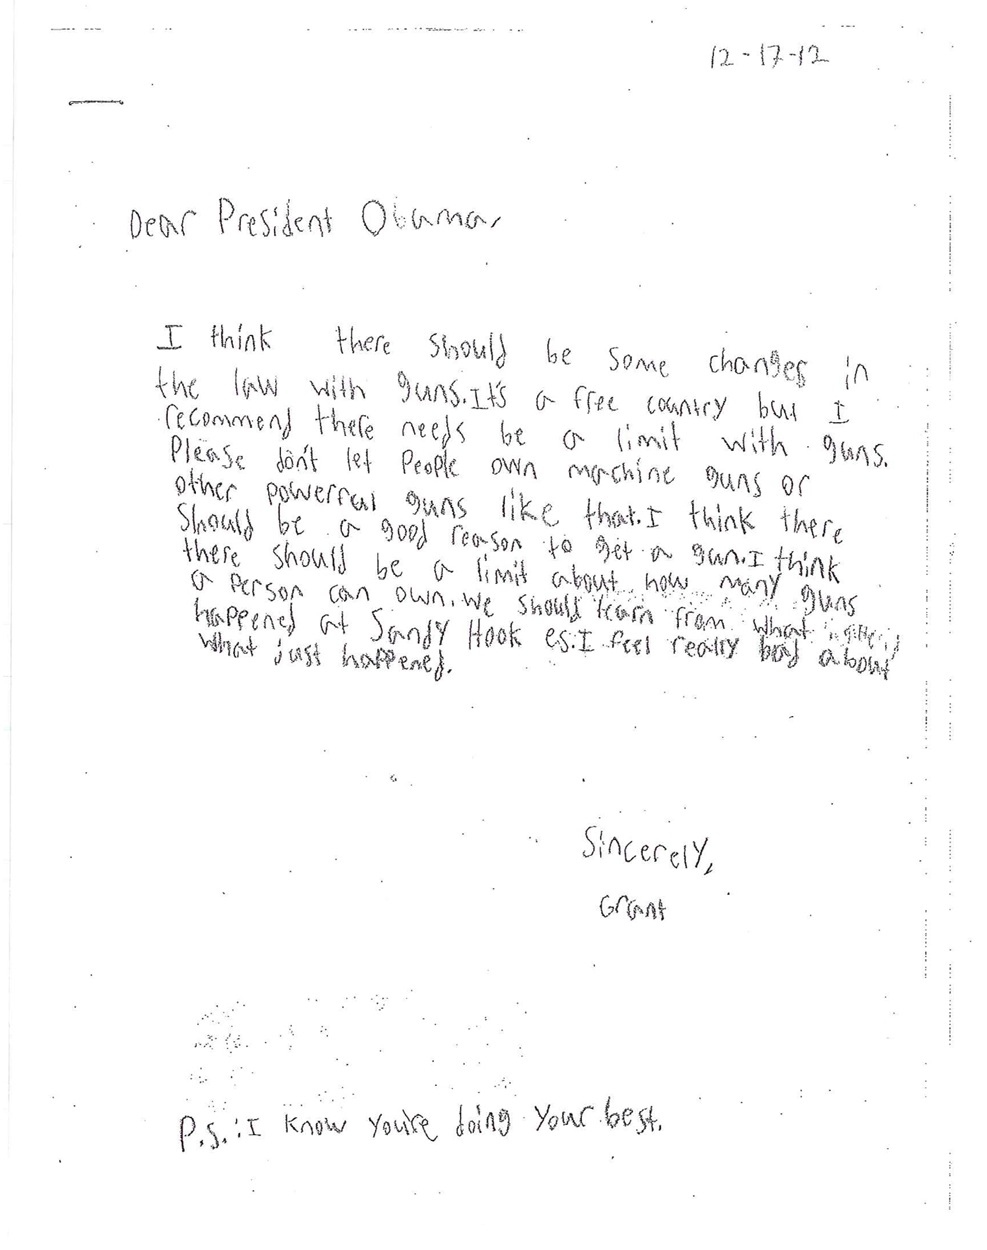 12-17-12
Dear President Obama,
I think there should be some changes in
the law with guns. It's a free country but I
recommend there needs be a limit with guns.
Please don't let People own machine guns or
other powerful guns like that. I think there
should be a good reason to get a gun. I think
there should be a limit about how many guns
a person can own. We should learn from what
happened at Sandy Hook es. I feel really bad about
what just happened.
Sincerely,
Grant
P.S.: I know you're doing your best.